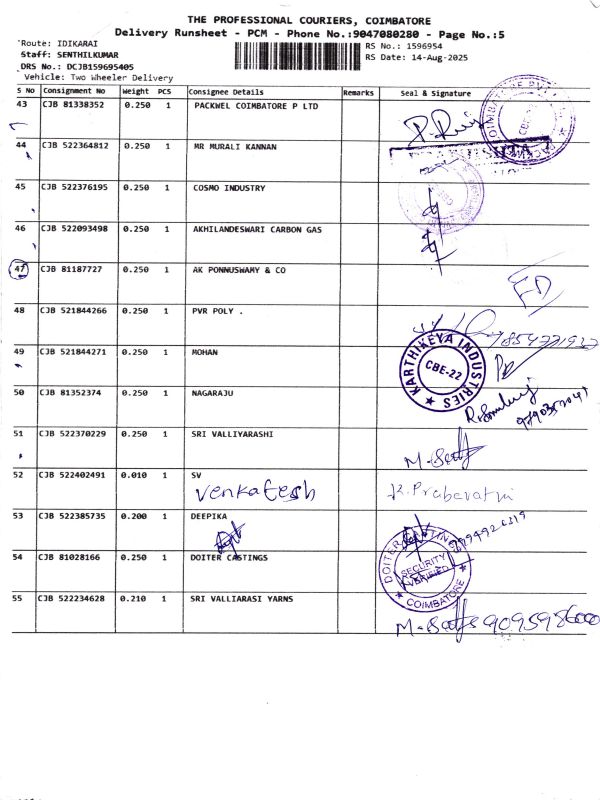 THE PROFESSIONAL COURIERS, COIMBATORE
Delivery Runsheet - PCM - Phone No.:9047080280 - Page No.:5
Route: IDIKARAI
RS No.: 1596954
Staff: SENTHILKUMAR
RS Date: 14-Aug-2025
DRS No.: DCJB159695405
Vehicle: Two Wheeler Delivery
S No Consignment No Weight PCS Consignee Details Remarks Seal & Signature
43 CJB 81338352 0.250 1 PACKWEL COIMBATORE P LTD
44 CJB 522364812 0.250 1 MR MURALI KANNAN
45 CJB 522376195 0.250 1 COSMO INDUSTRY
46 CJB 522093498 0.250 1 AKHILANDESWARI CARBON GAS
47 CJB 81187727 0.250 1 AK PONNUSWAMY & CO
48 CJB 521844266 0.250 1 PVR POLY .
49 CJB 521844271 0.250 1 MOHAN
KARTHIKEYA INDUSTRIES
CBE-22
50 CJB 81352374 0.250 1 NAGARAJU
51 CJB 522370229 0.250 1 SRI VALLIYARASHI
52 CJB 522402491 0.010 1 SV
Venkatesh K. Prabavathi
53 CJB 522385735 0.200 1 DEEPIKA
54 CJB 81028166 0.250 1 DOITER CASTINGS
SECURITY
VERIFIED
COIMBATORE
55 CJB 522234628 0.210 1 SRI VALLIARASI YARNS